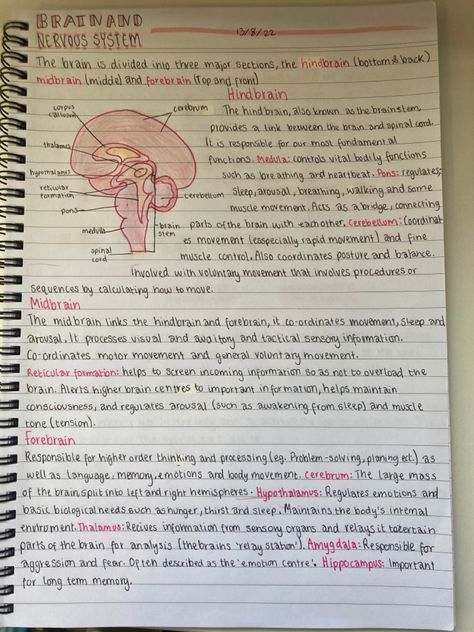 BRAIN AND
NERVOUS SYSTEM
13/8/22
The brain is divided into three major sections, the hindbrain (bottom & back)
midbrain (midde) and forebrain (top and front)
Hindbrain
corpus
callosum
cerebrum
thalamus
hypothalamus
reticular
formation
pons
medulla
spinal
cord
cerebellum
brain
stem
The hind brain, also known as the brainstem,
provides a link between the brain and spinal cord.
It is responsible for our most fundamental
functions. Medula: controls vital bodily functions
such as breathing and heartbeat. Pons: regulates;
sleep, arousal, breathing, walking and some
muscle movement. Acts as a bridge, connecting
parts of the brain with eachother. Cerebellum: Coordinat
es movement (esspecially rapid movement) and fine
muscle control. Also coordinates posture and balance.
Involved with voluntary movement that involves procedures or
sequences by calculating how to move.
Midbrain
The midbrain links the hindbrain and forebrain, it co-ordinates movement, sleep and
arousal. It processes visual and auditory and tactical sensory information.
Co-ordinates motor movement and general voluntary movement.
Reticular formation: helps to screen incoming information so as not to overload the
brain. Alerts higher brain centres to important information, helps maintain
consciousness, and regulates arousal (such as awakening from sleep) and muscle
tone (tension).
Forebrain
Responsible for higher order thinking and processing (eg. Problem-solving, planing ect.) as
well as language, memory, emotions and body movement. Cerebrum: The large mass
of the brain split into left and right hemispheres. Hypothalamus: Regulates emotions and
basic biological needs such as hunger, thirst and sleep. Maintains the body's internal
enviroment. Thalamus: Recives information from sensory organs and relays it to certain
parts of the brain for analysis (the brains 'relay station'). Amygdala: Responsible for
aggression and fear. Often described as the 'emotion centre'. Hippocampus: Important
for long term memory.